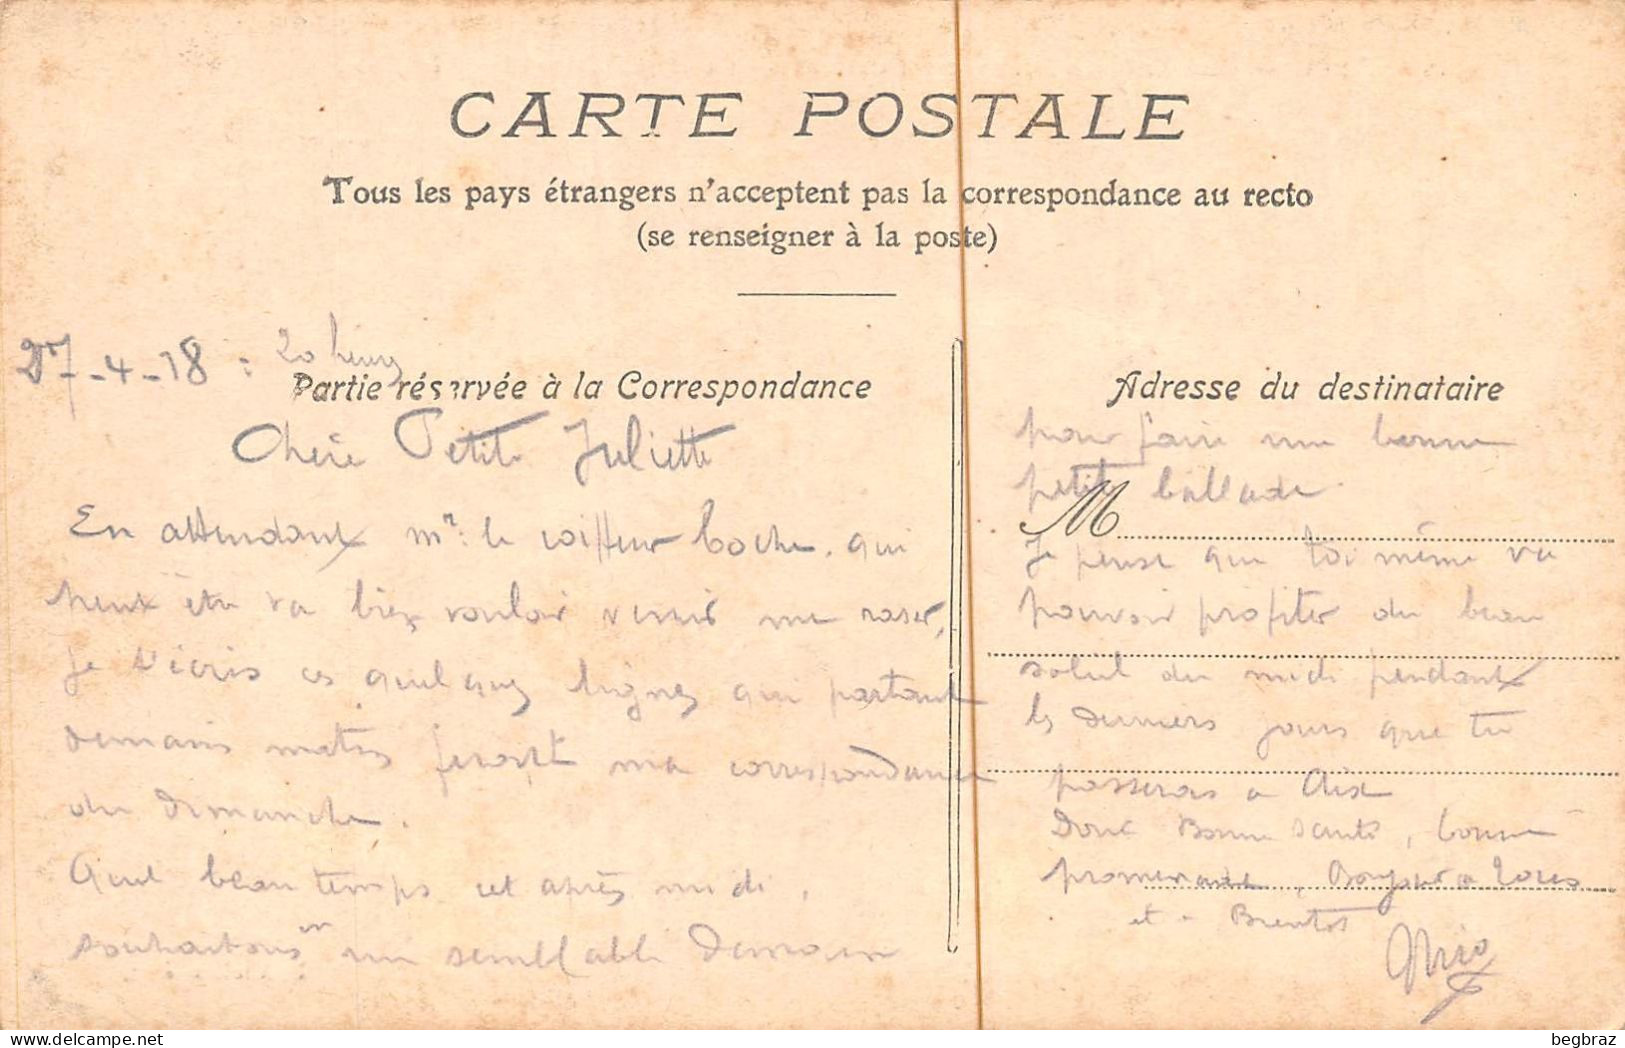 CARTE POSTALE
Tous les pays étrangers n'acceptent pas la correspondance au recto
(se renseigner à la poste)
27-4-18 : 20 heures
Partie réservée à la Correspondance
Chère Petite Juliette
En attendant mr. le coiffeur boche, qui
peut être va bien vouloir venir me raser,
je t'écris ces quelques lignes qui partant
demain matin feront ma correspondance
du Dimanche.
Quel beau temps cet après midi,
souhaitons m'en un semblable Demain
Adresse du destinataire
pour faire une bonne
petite ballade.
M
Je pense que toi même va
pouvoir profiter du beau
soleil du midi pendant
les derniers jours que tu
passeras a Aix
Donc Bonne santé, bonne
promenade, Bonjour a Tous
et a Bientôt